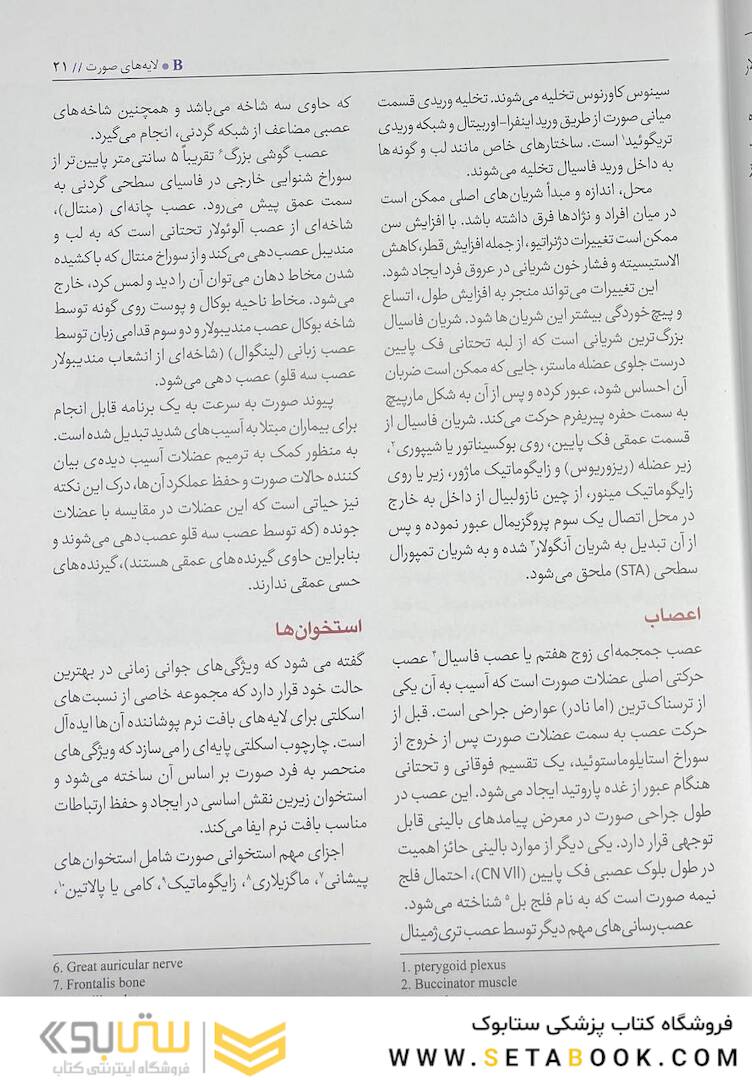 B • لایه‌های صورت // ۲۱
سینوس کاورنوس تخلیه می‌شوند. تخلیه وریدی قسمت
میانی صورت از طریق ورید اینفرا-اوربیتال و شبکه وریدی
تریگوئید۱ است. ساختارهای خاص مانند لب و گونه‌ها
به داخل ورید فاسیال تخلیه می‌شوند.
محل، اندازه و مبدأ شریان‌های اصلی ممکن است
در میان افراد و نژادها فرق داشته باشد. با افزایش سن
ممکن است تغییرات دژنراتیو، از جمله افزایش قطر، کاهش
الاستیسیته و فشار خون شریانی در عروق فرد ایجاد شود.
این تغییرات می‌تواند منجر به افزایش طول، اتساع
و پیچ‌خوردگی بیشتر این شریان‌ها شود. شریان فاسیال
بزرگ‌ترین شریانی است که از لبه تحتانی فک پایین
درست جلوی عضله ماستر، جایی که ممکن است ضربان
آن احساس شود، عبور کرده و پس از آن به شکل مارپیچ
به سمت حفره پیریفرم حرکت می‌کند. شریان فاسیال از
قسمت عمقی فک پایین، روی بوکسیناتور یا شیپوری۲،
زیر عضله (ریزوریوس) و زایگوماتیک ماژور، زیر یا روی
زایگوماتیک مینور، از چین نازولبیال از داخل به خارج
در محل اتصال یک سوم پروگزیمال عبور نموده و پس
از آن تبدیل به شریان آنگولار۳ شده و به شریان تمپورال
سطحی (STA) ملحق می‌شود.
اعصاب
عصب جمجمه‌ای زوج هفتم یا عصب فاسیال۴ عصب
حرکتی اصلی عضلات صورت است که آسیب به آن یکی
از ترسناک‌ترین (اما نادر) عوارض جراحی است. قبل از
حرکت عصب به سمت عضلات صورت پس از خروج از
سوراخ استایلوماستوئید، یک تقسیم فوقانی و تحتانی
هنگام عبور از غده پاروتید ایجاد می‌شود. این عصب در
طول جراحی صورت در معرض پیامدهای بالینی قابل
توجهی قرار دارد. یکی دیگر از موارد بالینی حائز اهمیت
در طول بلوک عصبی فک پایین (CN VII)، احتمال فلج
نیمه صورت است که به نام فلج بل۵ شناخته می‌شود.
عصب‌رسانی‌های مهم دیگر توسط عصب تری‌ژمینال
1. pterygoid plexus
2. Buccinator muscle
که حاوی سه شاخه می‌باشد و همچنین شاخه‌های
عصبی مضاعف از شبکه گردنی، انجام می‌گیرد.
عصب گوشی بزرگ۶ تقریباً ۵ سانتی‌متر پایین‌تر از
سوراخ شنوایی خارجی در فاسیای سطحی گردنی به
سمت عمق پیش می‌رود. عصب چانه‌ای (منتال)،
شاخه‌ای از عصب آلوئولار تحتانی است که به لب و
مندیبل عصب‌دهی می‌کند و از سوراخ منتال که با کشیده
شدن مخاط دهان می‌توان آن را دید و لمس کرد، خارج
می‌شود. مخاط ناحیه بوکال و پوست روی گونه توسط
شاخه بوکال عصب مندیبولار و دو سوم قدامی زبان توسط
عصب زبانی (لینگوال) (شاخه‌ای از انشعاب مندیبولار
عصب سه قلو) عصب دهی می‌شود.
پیوند صورت به سرعت به یک برنامه قابل انجام
برای بیماران مبتلا به آسیب‌های شدید تبدیل شده است.
به منظور کمک به ترمیم عضلات آسیب دیده‌ی بیان
کننده حالات صورت و حفظ عملکرد آن‌ها، درک این نکته
نیز حیاتی است که این عضلات در مقایسه با عضلات
جونده (که توسط عصب سه قلو عصب‌دهی می‌شوند و
بنابراین حاوی گیرنده‌های عمقی هستند)، گیرنده‌های
حسی عمقی ندارند.
استخوان‌ها
گفته می شود که ویژگی‌های جوانی زمانی در بهترین
حالت خود قرار دارد که مجموعه خاصی از نسبت‌های
اسکلتی برای لایه‌های بافت نرم پوشاننده آن‌ها ایده‌آل
است. چارچوب اسکلتی پایه‌ای را می‌سازد که ویژگی‌های
منحصر به فرد صورت بر اساس آن ساخته می‌شود و
استخوان زیرین نقش اساسی در ایجاد و حفظ ارتباطات
مناسب بافت نرم ایفا می‌کند.
اجزای مهم استخوانی صورت شامل استخوان‌های
پیشانی۷، ماگزیلاری۸، زایگوماتیک۹، کامی یا پالاتین۱۰،
6. Great auricular nerve
7. Frontalis bone
فروشگاه کتاب پزشکی ستابوک
WWW.SETABOOK.COM
ستابوک
فروشگاه اینترنتی کتاب